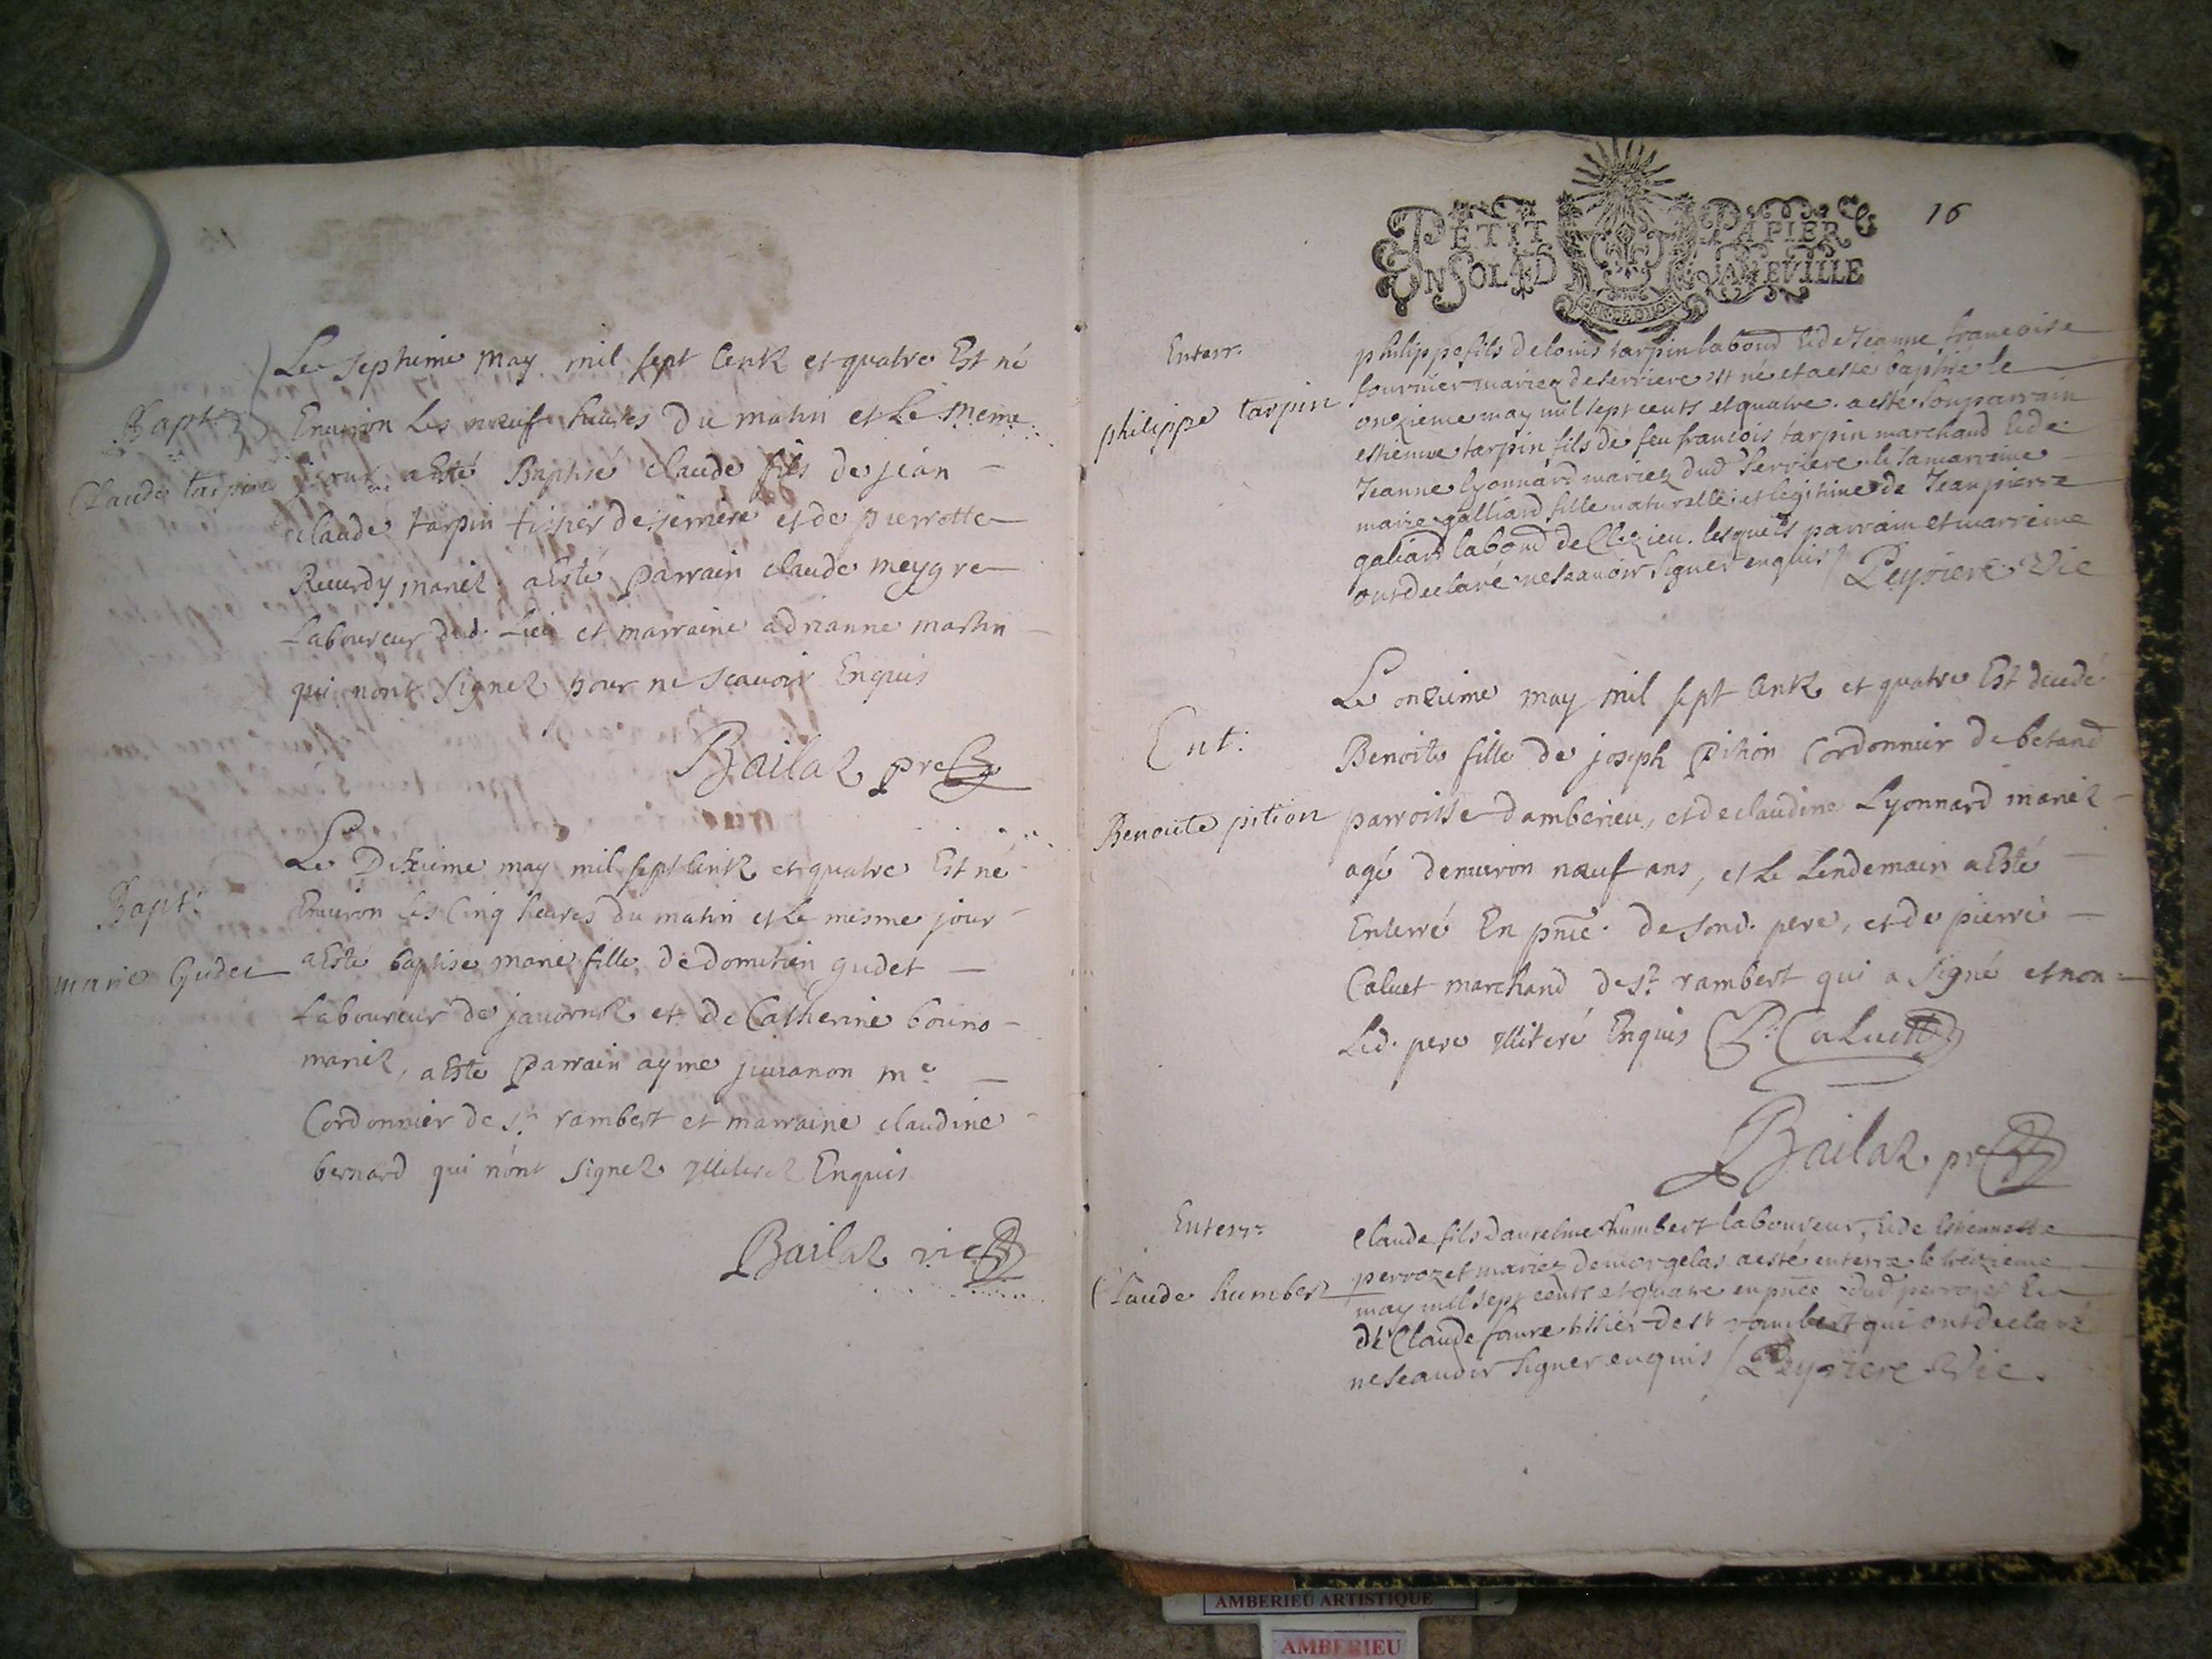 Le septieme may mil sept centz et quatre Est né
Bapt.
Environ les nœuf heures du matin et le meme
Claude tarpin
jour a Esté Baptisé claude fils de jean
claude tarpin tissier de serriere et de pierrotte
mariez a Esté parrain claude meygre
Laboureur dud. Lieu et marraine adrianne martin
qui nont signez pour ne scavoir Enquis
Bailaz pre
Le Dixieme may mil sept centz et quatre Est né
Bapt.
Environ les Cinq heures du matin et le mesme jour
marie Gudet
a Esté baptisé marie fille de domitien gudet
Laboureur de javornoz et de Catherine bouno
mariez, a Esté parrain ayme juvanon me
Cordonnier de st rambert et marraine claudine
bernard qui nont signez illiterez Enquis
Bailaz vic
16
PETIT PAPIER
UN SOL 4 D LA FEUILLE
Enterr.
philippe tarpin
philippe fils de louis tarpin laboud. & de Jeanne francoise
fournier mariez de serriere est né et a esté baptisé le
onzieme may mil sept cents et quatre. a esté son parrain
estienne tarpin fils de feu francois tarpin marchand & de
Jeanne lyonnard mariez dud serriere & sa marreine
marie galliard fille naturelle et legitime de Jean pierre
galiard laboud de Clezieu. lesquels parrain et marreine
ont declaré ne scavoir signer enquis / Peysiere Vic
Ent.
Benoite pition
Le onzieme may mil sept centz et quatre Est decedé
Benoite fille de joseph Pition Cordonnier de betand
parroisse damberieu, et de claudine Lyonnard mariez
agé denviron nœuf ans, et le Lendemain a Esté
Enterré En pnce. de sond. pere, et de pierre
Caluet marchand de st rambert qui a signé et non
Led. pere illiteré Enquis P. Caluet
Bailaz pre
Enterr.
Claude humbert
Claude fils d'antelme humbert laboureur, & de Estiennette
perrozet mariez de morgelas a esté enterré le treizieme
may mil sept cents et quatre en pnce dud perrozet &
de Claude faure tissier de st rambert qui ont declaré
ne scavoir signer enquis / Peysiere Vic.
AMBERIEU ARTISTIQUE
AMBERIEU